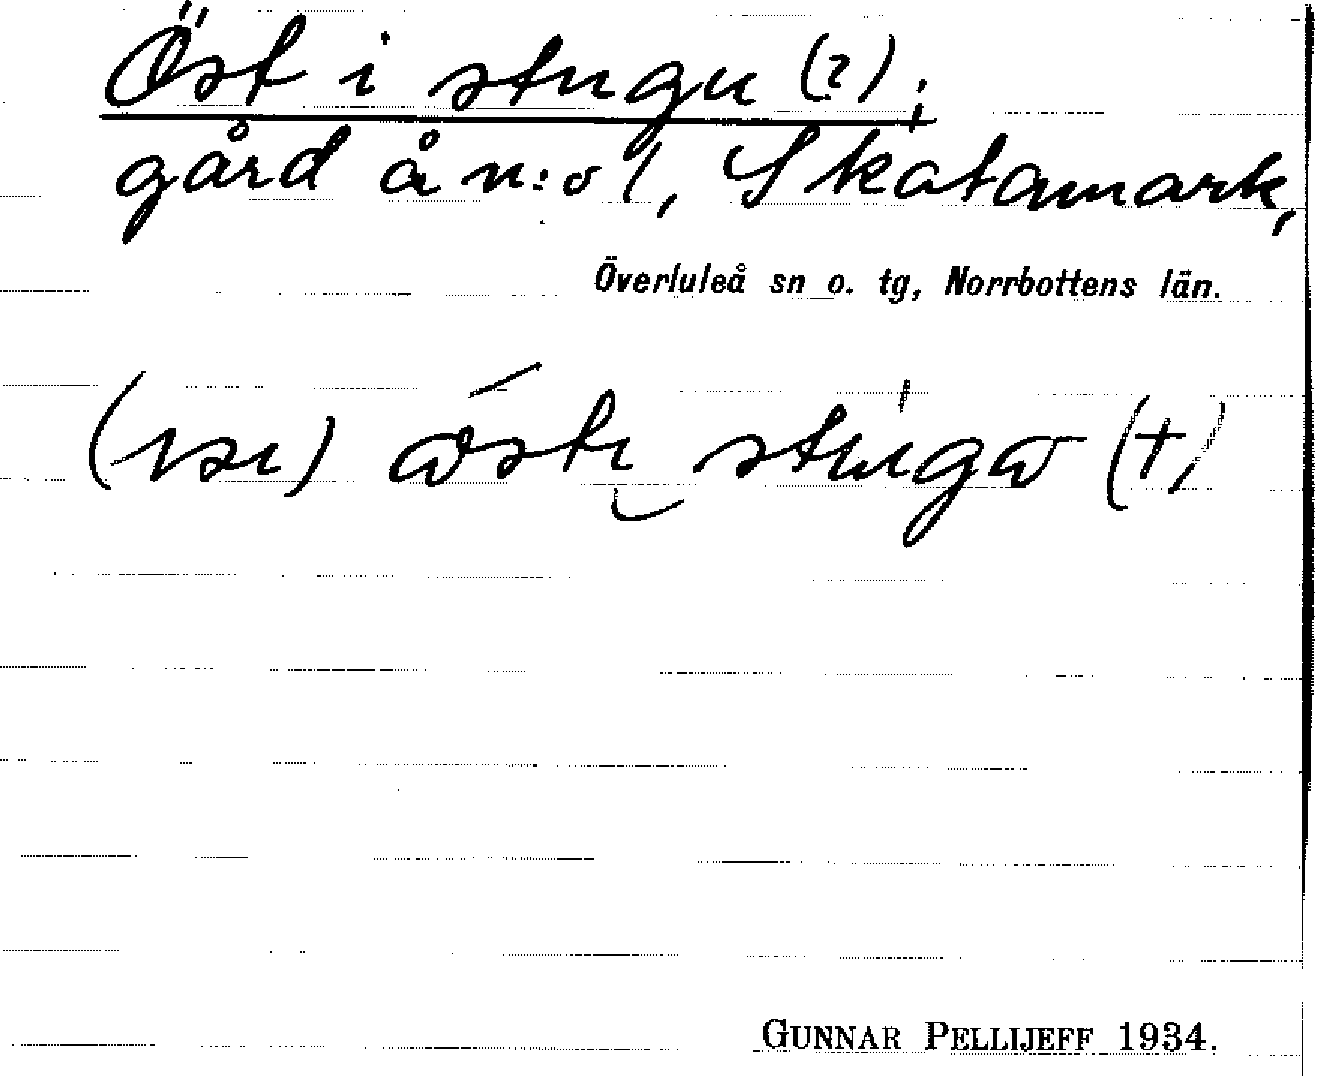 Öst i stugu (?);
gård å n:o 1, Skatamark,
Överluleå sn o. tg, Norrbottens län.
GUNNAR PELLIJEFF 1934.